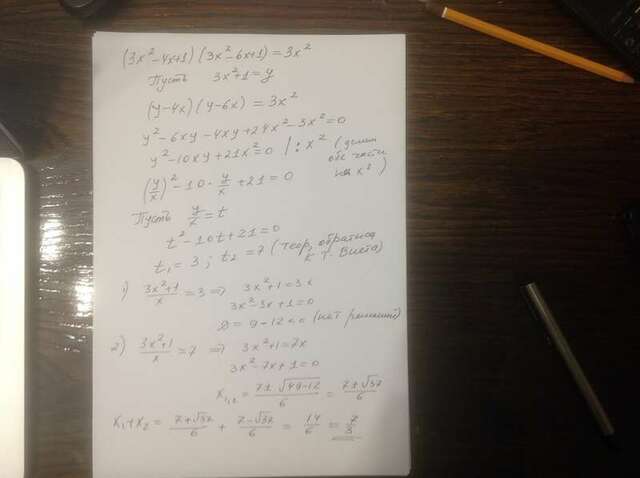 (3x²-4x+1)(3x²-6x+1)=3x²
Пусть 3x²+1=y
(y-4x)(y-6x)=3x²
y²-6xy-4xy+24x²-3x²=0
y²-10xy+21x²=0 | : x² (делим обе части на x²)
(y/x)²-10·y/x+21=0
Пусть y/x=t
t²-10t+21=0
t₁=3; t₂=7 (теор, обратная к т. Виета)
1) (3x²+1)/x=3 ⇒ 3x²+1=3x
3x²-3x+1=0
D=9-12<0 (нет решений)
2) (3x²+1)/x=7 ⇒ 3x²+1=7x
3x²-7x+1=0
x₁,₂=(7±√(49-12))/6=(7±√37)/6
x₁+x₂=(7+√37)/6+(7-√37)/6=14/6=7/3